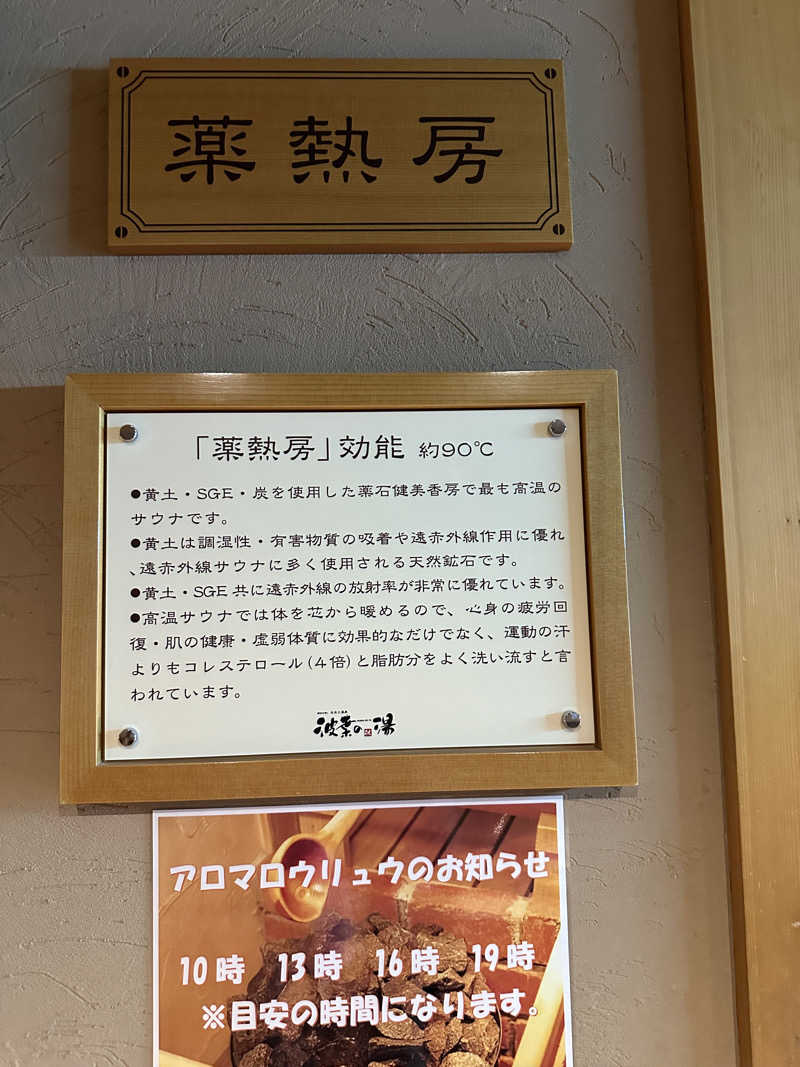 薬熱房
「薬熱房」効能 約90℃
●黄土・SGE・炭を使用した薬石健美香房で最も高温の
サウナです。
●黄土は調湿性・有害物質の吸着や遠赤外線作用に優れ
、遠赤外線サウナに多く使用される天然鉱石です。
●黄土・SGE 共に遠赤外線の放射率が非常に優れています。
●高温サウナでは体を芯から暖めるので、心身の疲労回
復・肌の健康・虚弱体質に効果的なだけでなく、運動の汗
よりもコレステロール(4倍)と脂肪分をよく洗い流すと言
われています。
波葉の湯
アロマロウリュウのお知らせ
10時 13時 16時 19時
※目安の時間になります。